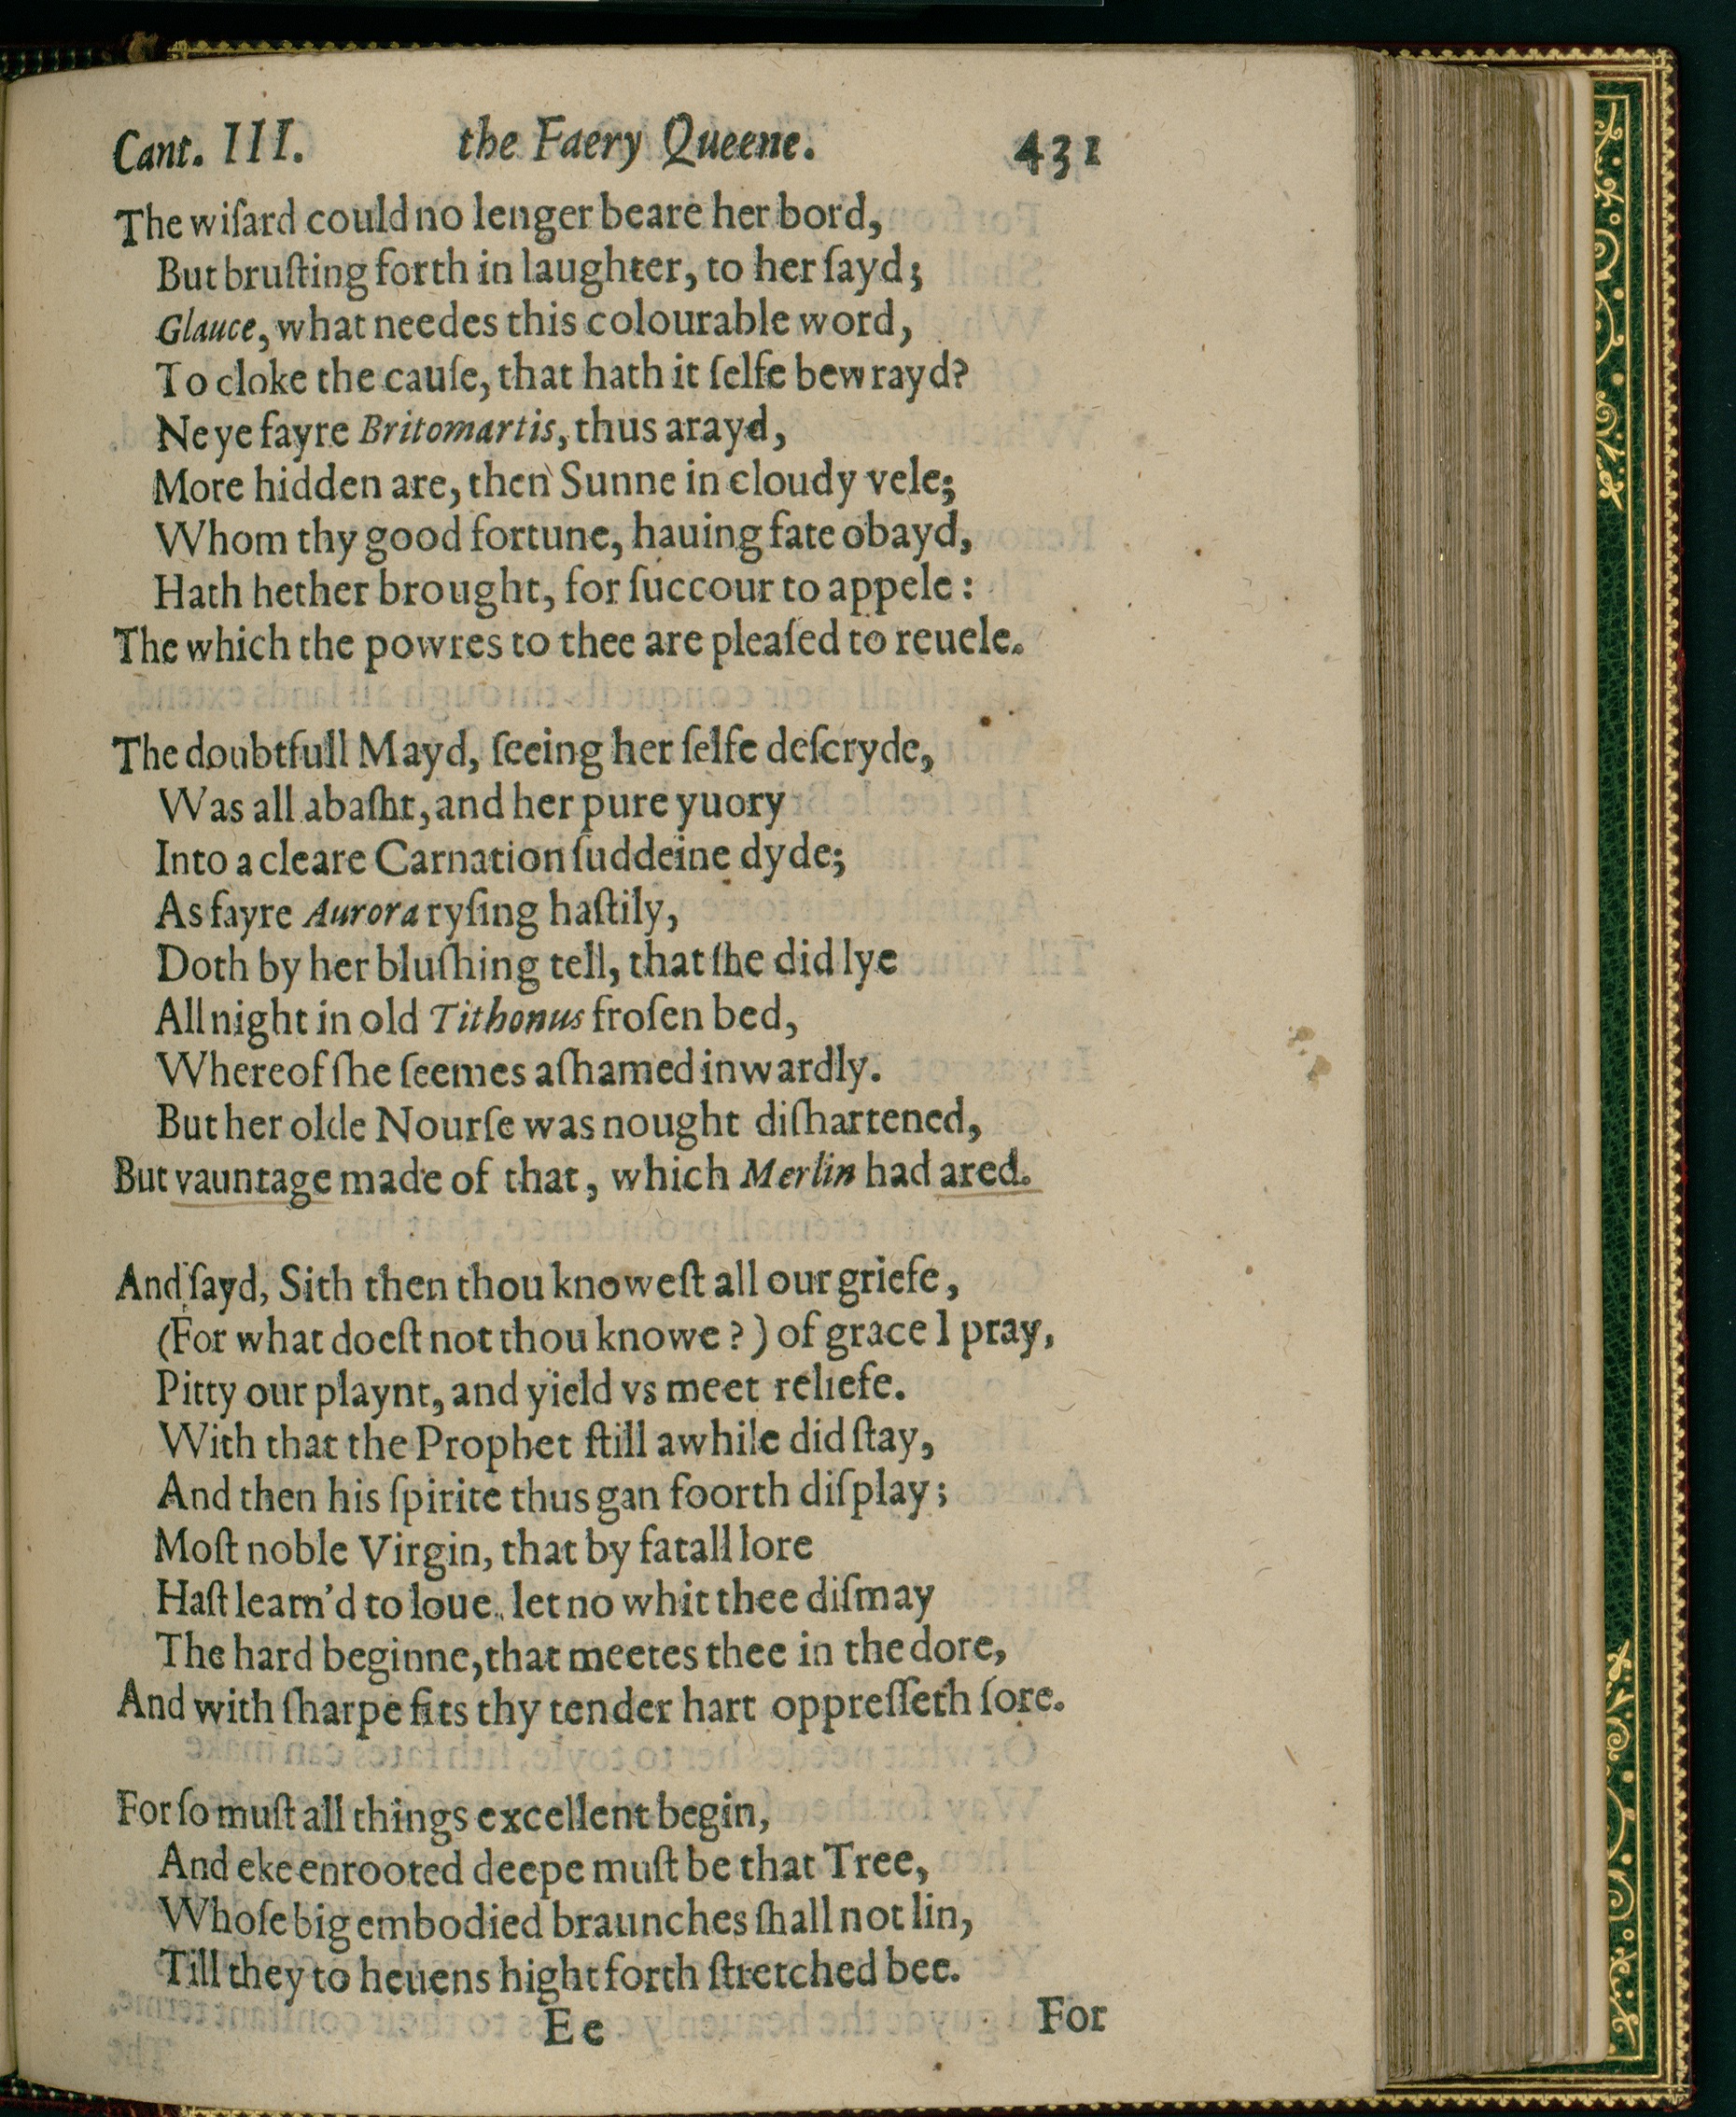 Cant. III. the Faery Queene. 431
The wiſard could no lenger beare her bord,
But bruſting forth in laughter, to her ſayd;
Glauce, what needes this colourable word,
To cloke the cauſe, that hath it ſelfe bewrayd?
Ne ye fayre Britomartis, thus arayd,
More hidden are, then Sunne in cloudy vele;
Whom thy good fortune, hauing fate obayd,
Hath hether brought, for ſuccour to appele:
The which the powres to thee are pleaſed to reuele.
The doubtfull Mayd, ſeeing her ſelfe deſcryde,
Was all abaſht, and her pure yuory
Into a cleare Carnation ſuddeine dyde;
As fayre Aurora ryſing haſtily,
Doth by her bluſhing tell, that ſhe did lye
All night in old Tithonus froſen bed,
Whereof ſhe ſeemes aſhamed inwardly.
But her olde Nourſe was nought diſhartened,
But vauntage made of that, which Merlin had ared.
And ſayd, Sith then thou knoweſt all our griefe,
(For what doeſt not thou knowe?) of grace I pray,
Pitty our playnt, and yield vs meet reliefe.
With that the Prophet ſtill awhile did ſtay,
And then his ſpirite thus gan foorth diſplay;
Moſt noble Virgin, that by fatall lore
Haſt learn'd to loue, let no whit thee diſmay
The hard beginne, that meetes thee in the dore,
And with ſharpe fits thy tender hart oppreſſeth ſore.
For ſo muſt all things excellent begin,
And eke enrooted deepe muſt be that Tree,
Whoſe big embodied braunches ſhall not lin,
Till they to heuens hight forth ſtretched bee.
Ee For